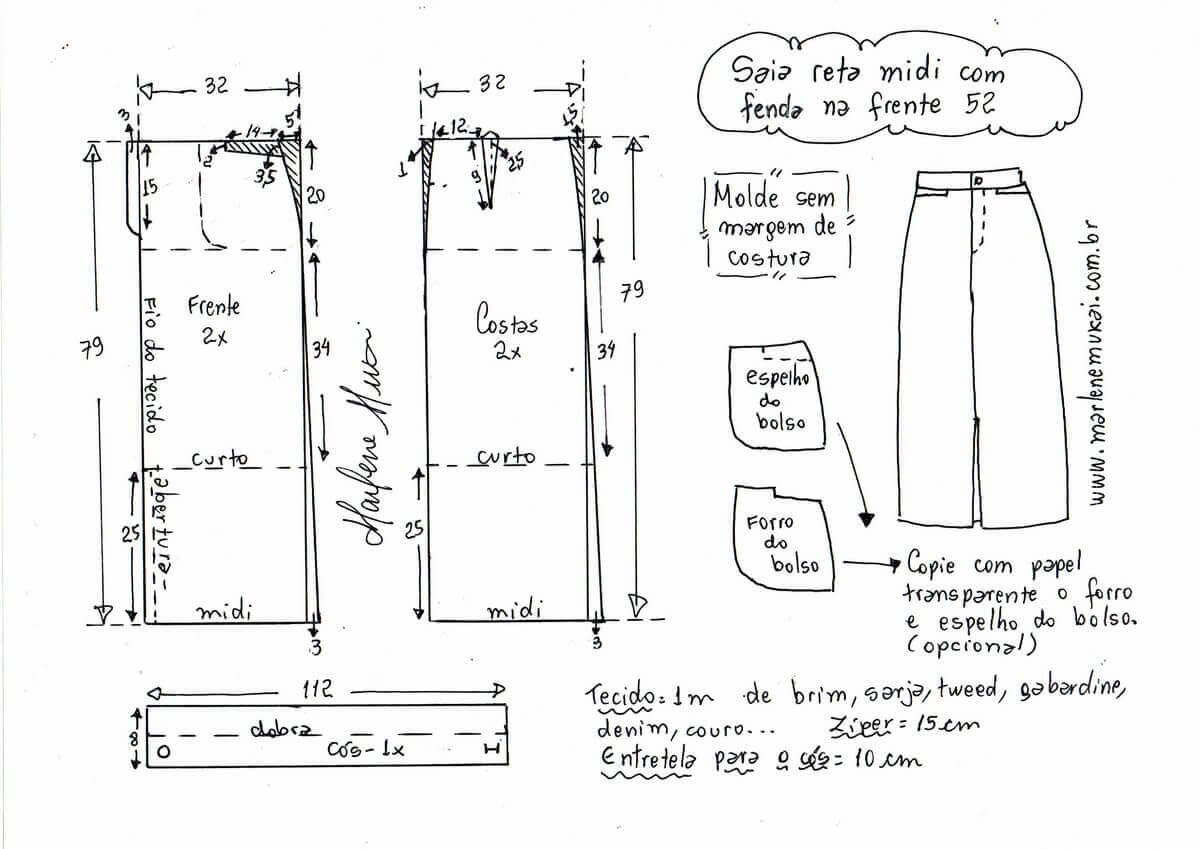 Saia reta midi com
fenda na frente 52
32
3
14
5
2
3,5
15
20
79
Frente
2x
Fio do tecido
34
curto
abertura
25
midi
3
Marlene Mukai
32
12
1,5
1
9
2,5
20
79
Costas
2x
34
curto
25
midi
3
Molde sem
margem de
costura
espelho
do
bolso
Forro
do
bolso
www.marlenemukai.com.br
Copie com papel
transparente o forro
e espelho do bolso.
(opcional)
112
8
dobra
cós-1x
Tecido=1m de brim, sarja, tweed, gabardine,
denim, couro... Zíper=15cm
Entretela para o cós=10cm